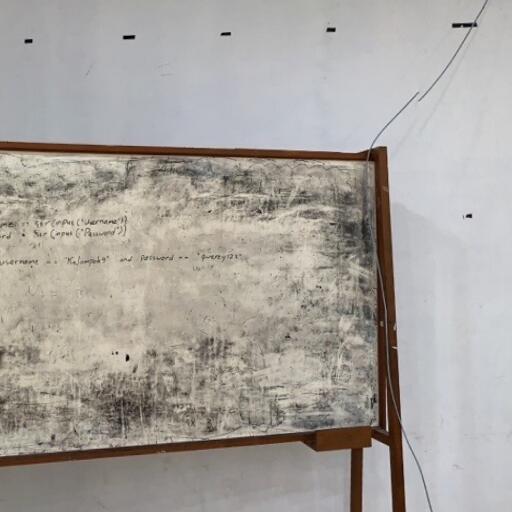 me = str(input("Username"))
ord = str(input("Password"))
username == "Kelompok9" and Password == "qwerty123"